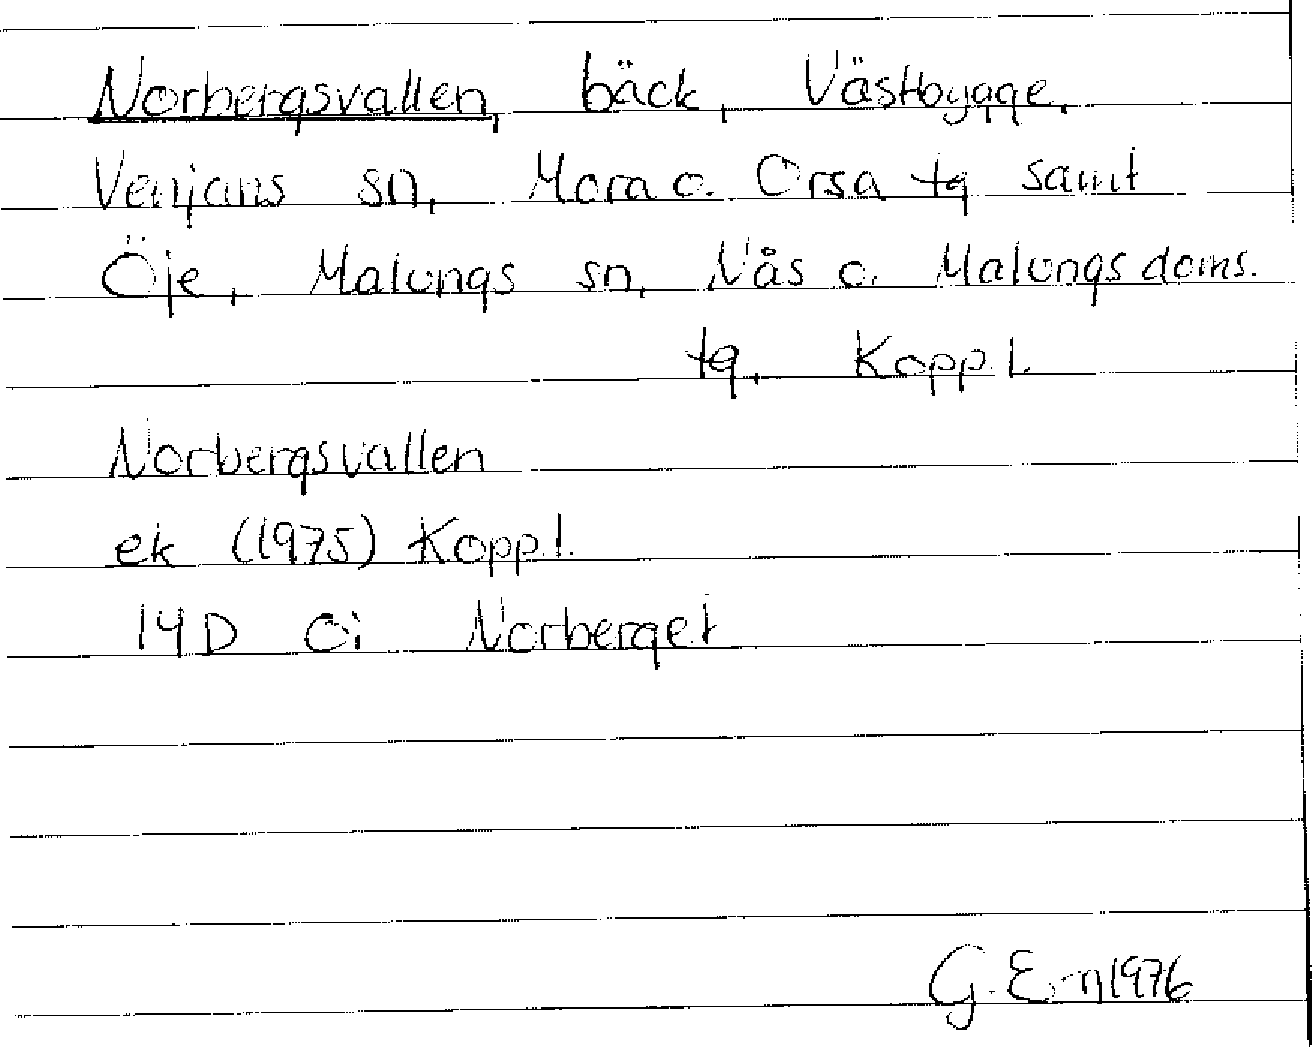 Norbergsvallen, bäck, Västbygge,
Venjans sn, Mora o. Orsa tg samt
Öje, Malungs sn, Nås o. Malungs doms.
tg, Kopp. l.
Norbergsvallen
ek (1975) Kopp. l.
14D 0i Norberget
G. E-n 1976